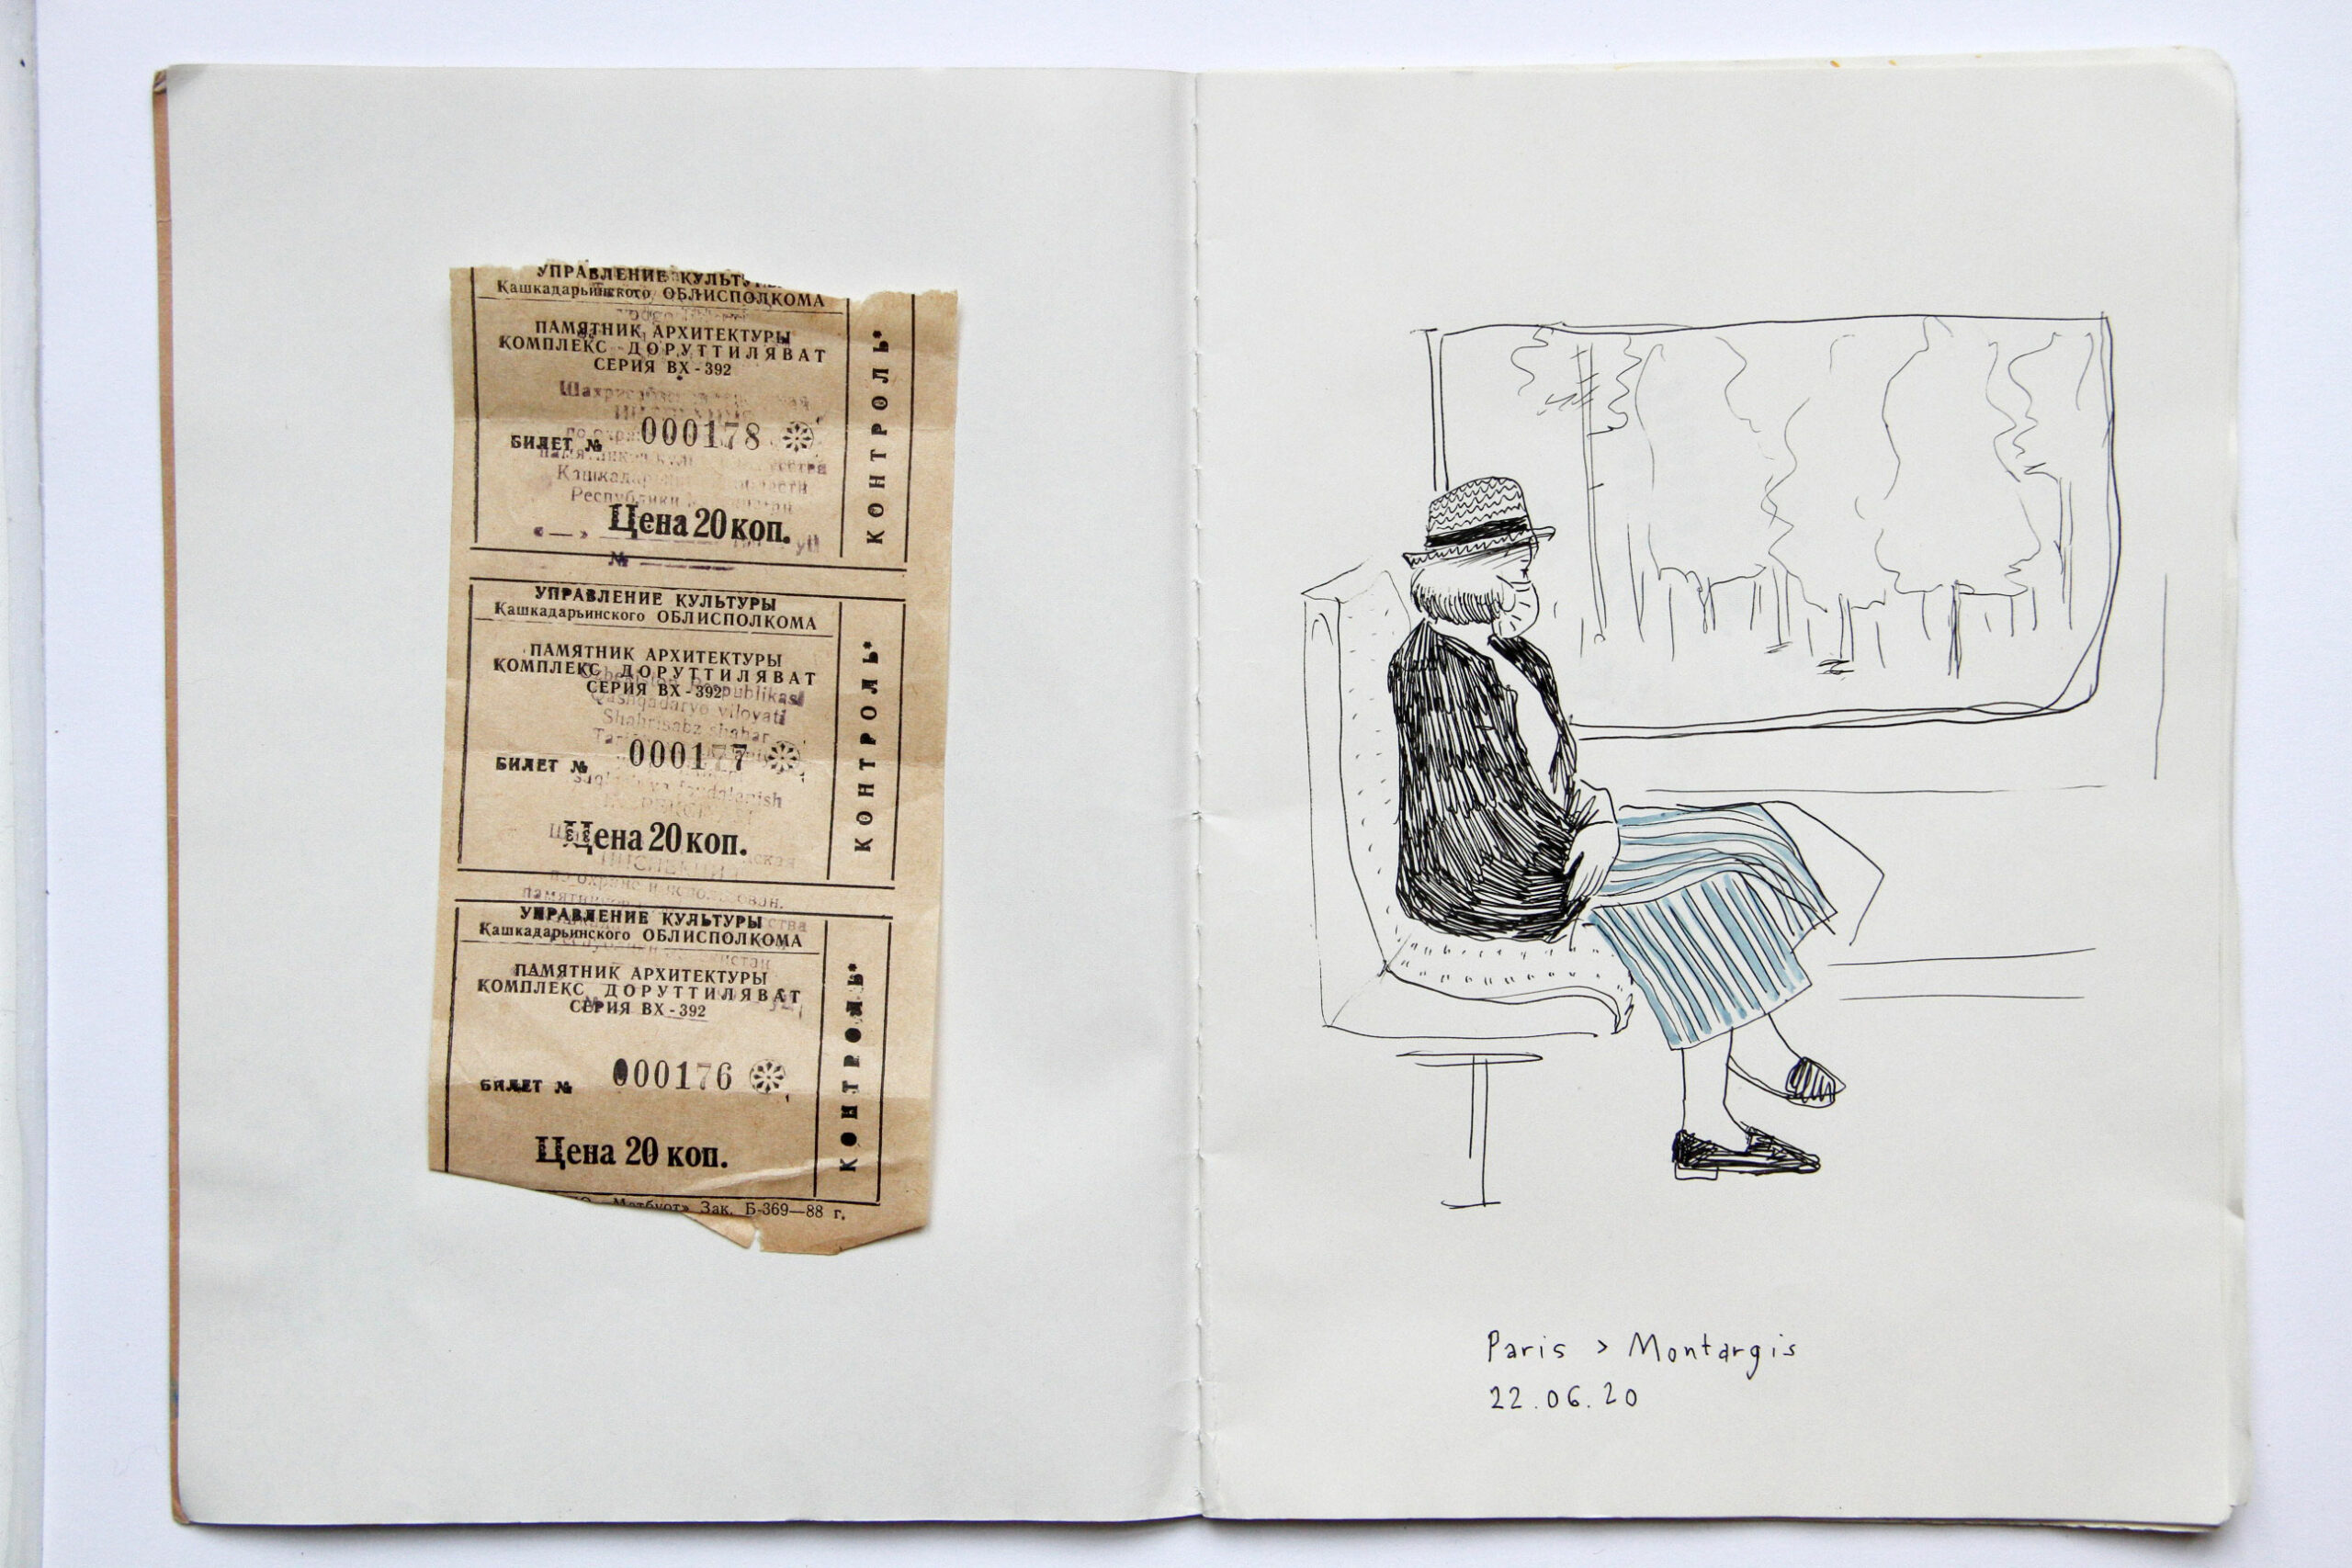 УПРАВЛЕНИЕ КУЛЬТУ
Кашкадарьинского ОБЛИСПОЛКОМА
ПАМЯТНИК АРХИТЕКТУРЫ
КОМПЛЕКС ДОРУТТИЛЯВАТ
СЕРИЯ ВХ-392
БИЛЕТ № 000178
Цена 20 коп.
КОНТРОЛЬ*
№
УПРАВЛЕНИЕ КУЛЬТУРЫ
Кашкадарьинского ОБЛИСПОЛКОМА
ПАМЯТНИК АРХИТЕКТУРЫ
КОМПЛЕКС ДОРУТТИЛЯВАТ
СЕРИЯ ВХ-392
Qashqadaryo viloyati
Shahrisabz shahar
БИЛЕТ № 000177
Цена 20 коп.
КОНТРОЛЬ*
УПРАВЛЕНИЕ КУЛЬТУРЫ
Кашкадарьинского ОБЛИСПОЛКОМА
ПАМЯТНИК АРХИТЕКТУРЫ
КОМПЛЕКС ДОРУТТИЛЯВАТ
СЕРИЯ ВХ-392
БИЛЕТ № 000176
Цена 20 коп.
КОНТРОЛЬ*
Матбуот» Зак. Б-369—88 г.
Paris > Montargis
22.06.20